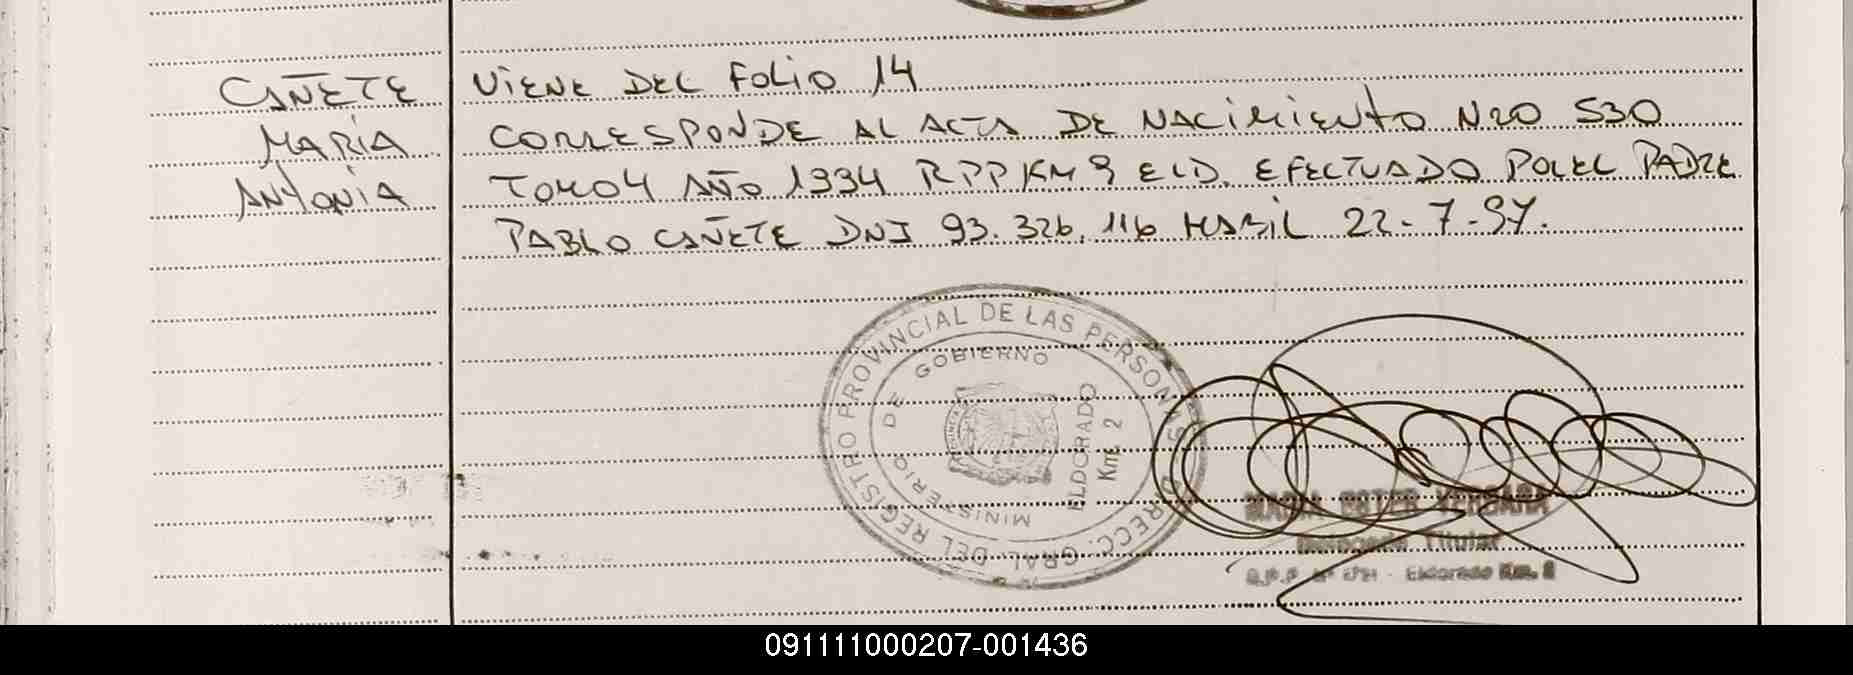 CAÑETE
MARÍA
ANTONIA
VIENE DEL FOLIO 14
CORRESPONDE AL ACTA DE NACIMIENTO NRO 530
TOMO4 AÑO 1994 RPP KM 9 ELD. EFECTUADO POR EL PADRE
PABLO CAÑETE DNI 93.326.116 HABIL 22-7-97.
DIRECC. GRAL. DEL REGISTRO PROVINCIAL DE LAS PERSONAS
MINISTERIO DE GOBIERNO
ELDORADO
Km 2
MARIA ESTER VERGARA
Delegada Titular
Eldorado Km.
091111000207-001436